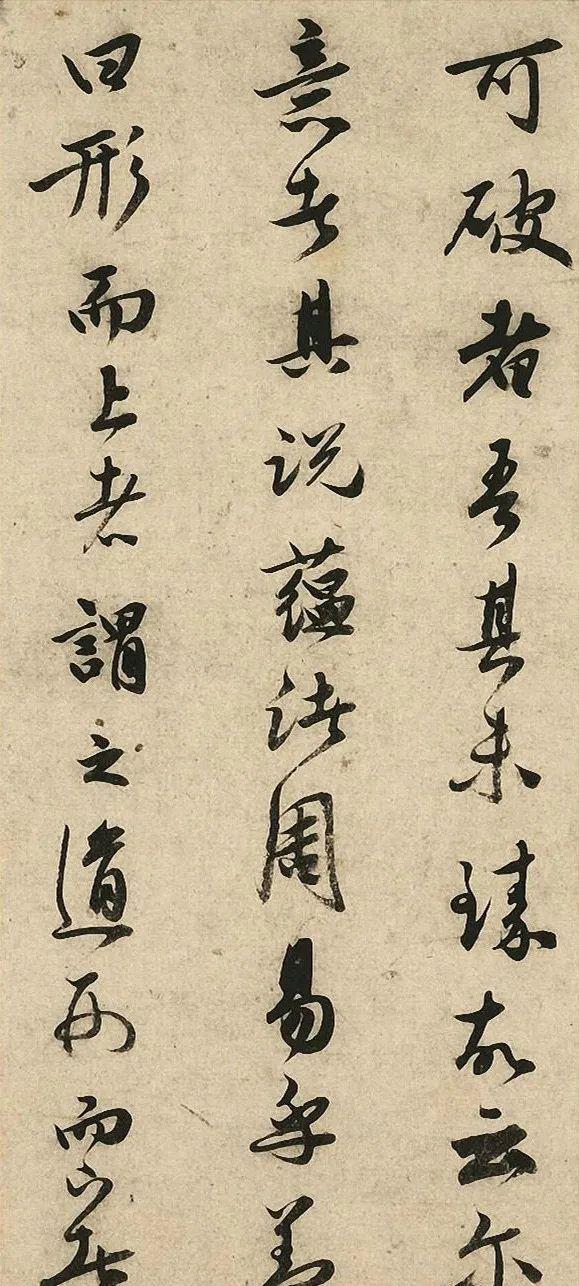 可破者吾其未臻故云尔
意者其說藴諸周易乎
曰形而上者謂之道形而下者